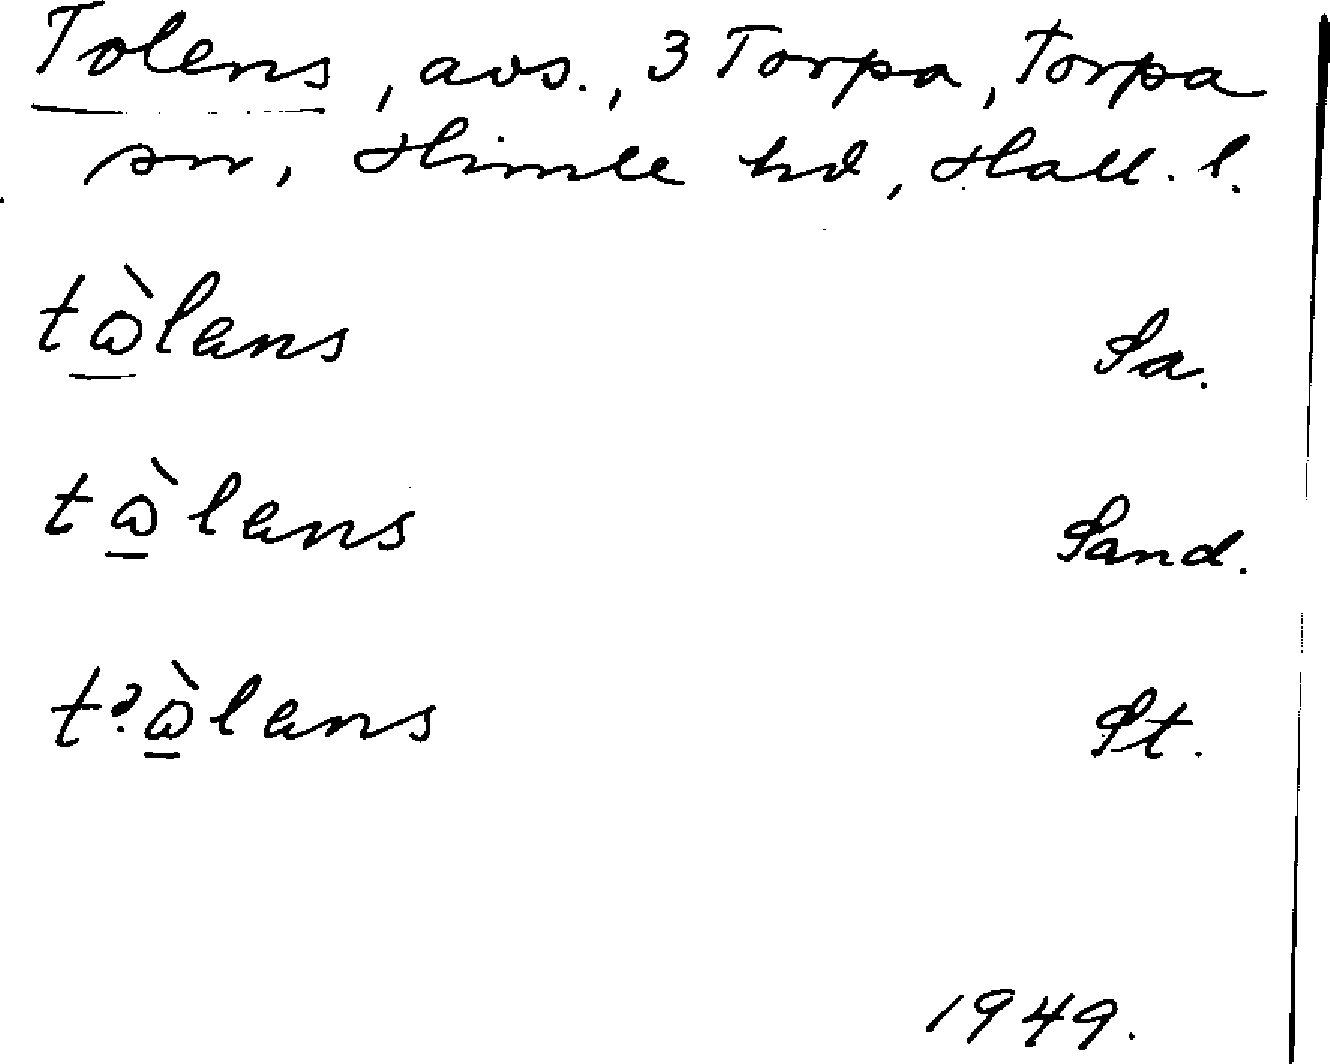 Tolens, avs., 3 Torpa, Torpa
sn, Himle hd, Hall. l.
tὼ̲lans Sa.
tὼ̲lans Sand.
t?ὼ̲lans St.
1949.